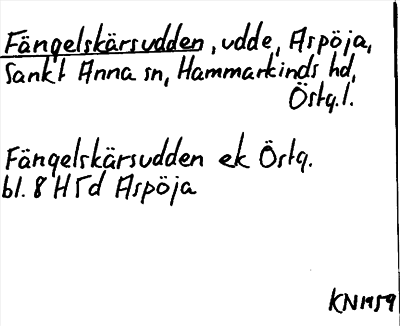 Fängelskärsudden, udde, Aspöja,
Sankt Anna sn, Hammarkinds hd,
Östg.l.
Fängelskärsudden ek Östg.
bl. 8 H Γd Aspöja
KN 1959